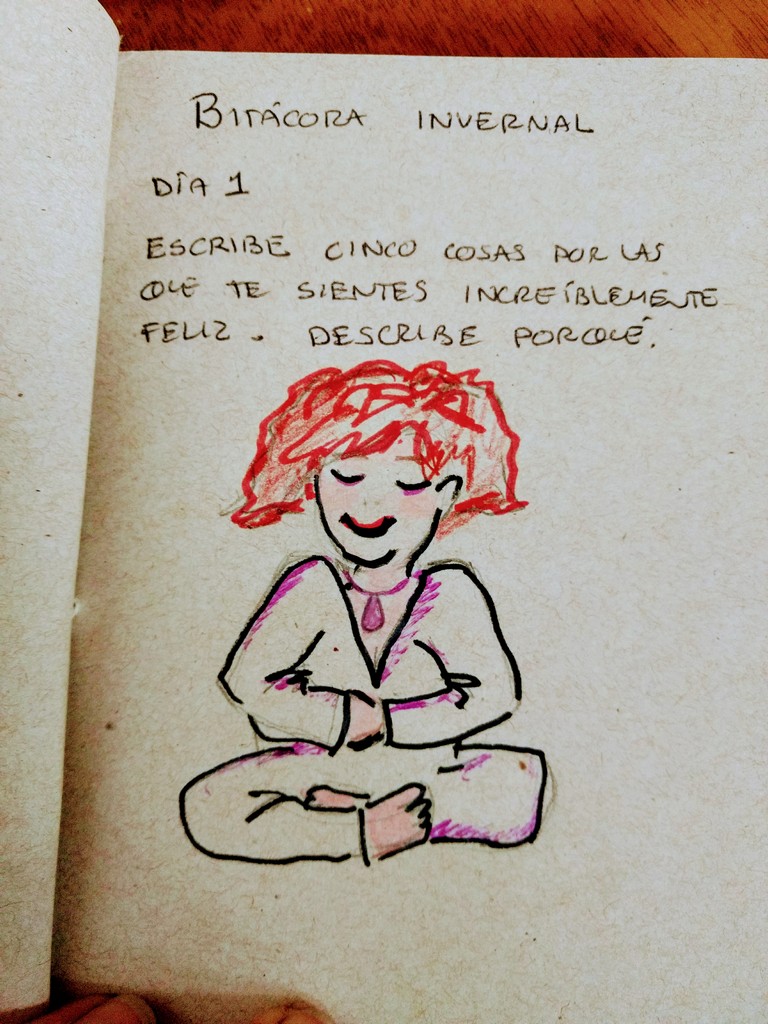 BITÁCORA INVERNAL
DÍA 1
ESCRIBE CINCO COSAS POR LAS
QUE TE SIENTES INCREÍBLEMENTE
FELIZ. DESCRIBE PORQUÉ.